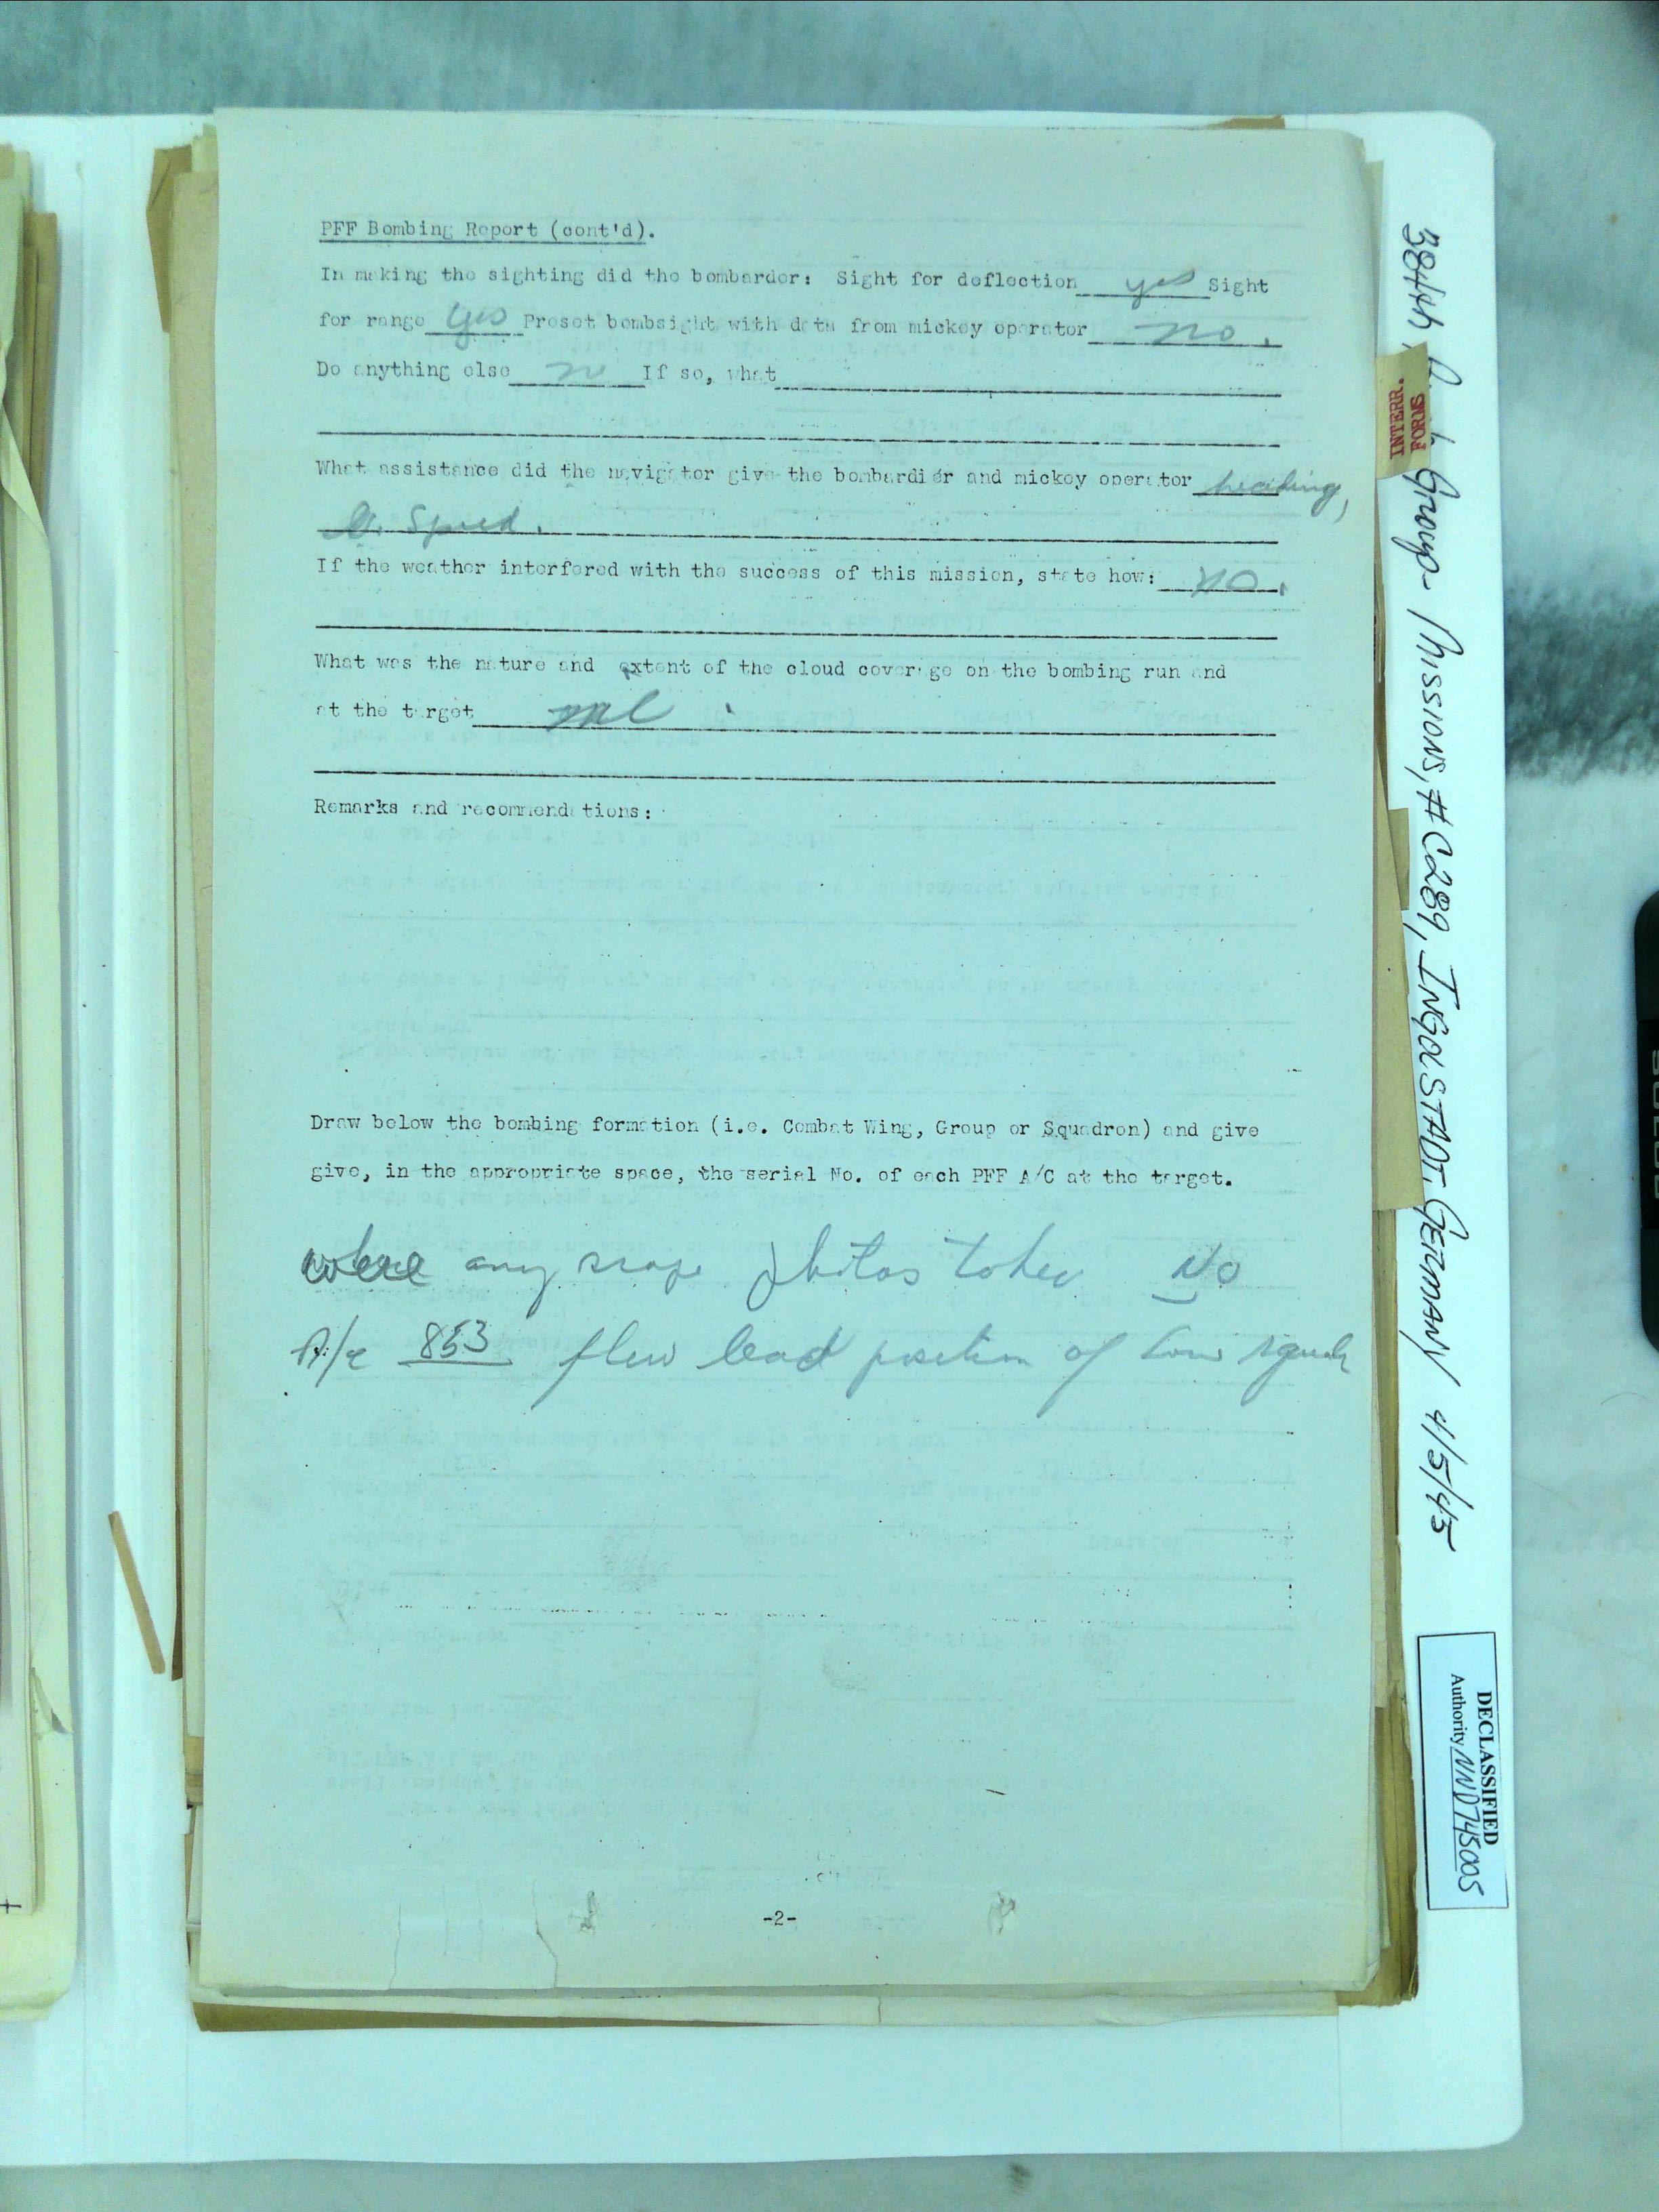 PFF Bombing Report (cont'd).
In making the sighting did the bombarder: Sight for deflection yes Sight
for range yes Preset bombsight with data from mickey operator no.
Do anything else no If so, what
What assistance did the navigator give the bombardier and mickey operator heading,
Speed.
If the weather interfered with the success of this mission, state how: no.
What was the nature and extent of the cloud coverage on the bombing run and
at the target nil.
Remarks and recommendations:
Draw below the bombing formation (i.e. Combat Wing, Group or Squadron) and give
give, in the appropriate space, the serial No. of each PFF A/C at the target.
where any scope photos taken No
A/c 853 flew lead position of low
-2-
INTERR.
FORMS
384th Group- Missions, # Co289, INGOLSTADT, GERMANY 4/5/45
DECLASSIFIED
Authority NND745005